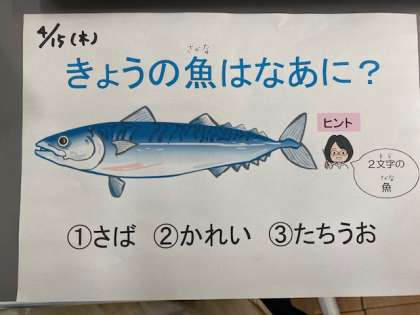 4/15(木)
きょうの魚はなあに？
さかな
ヒント
2文字の
もじ
魚
さかな
①さば ②かれい ③たちうお